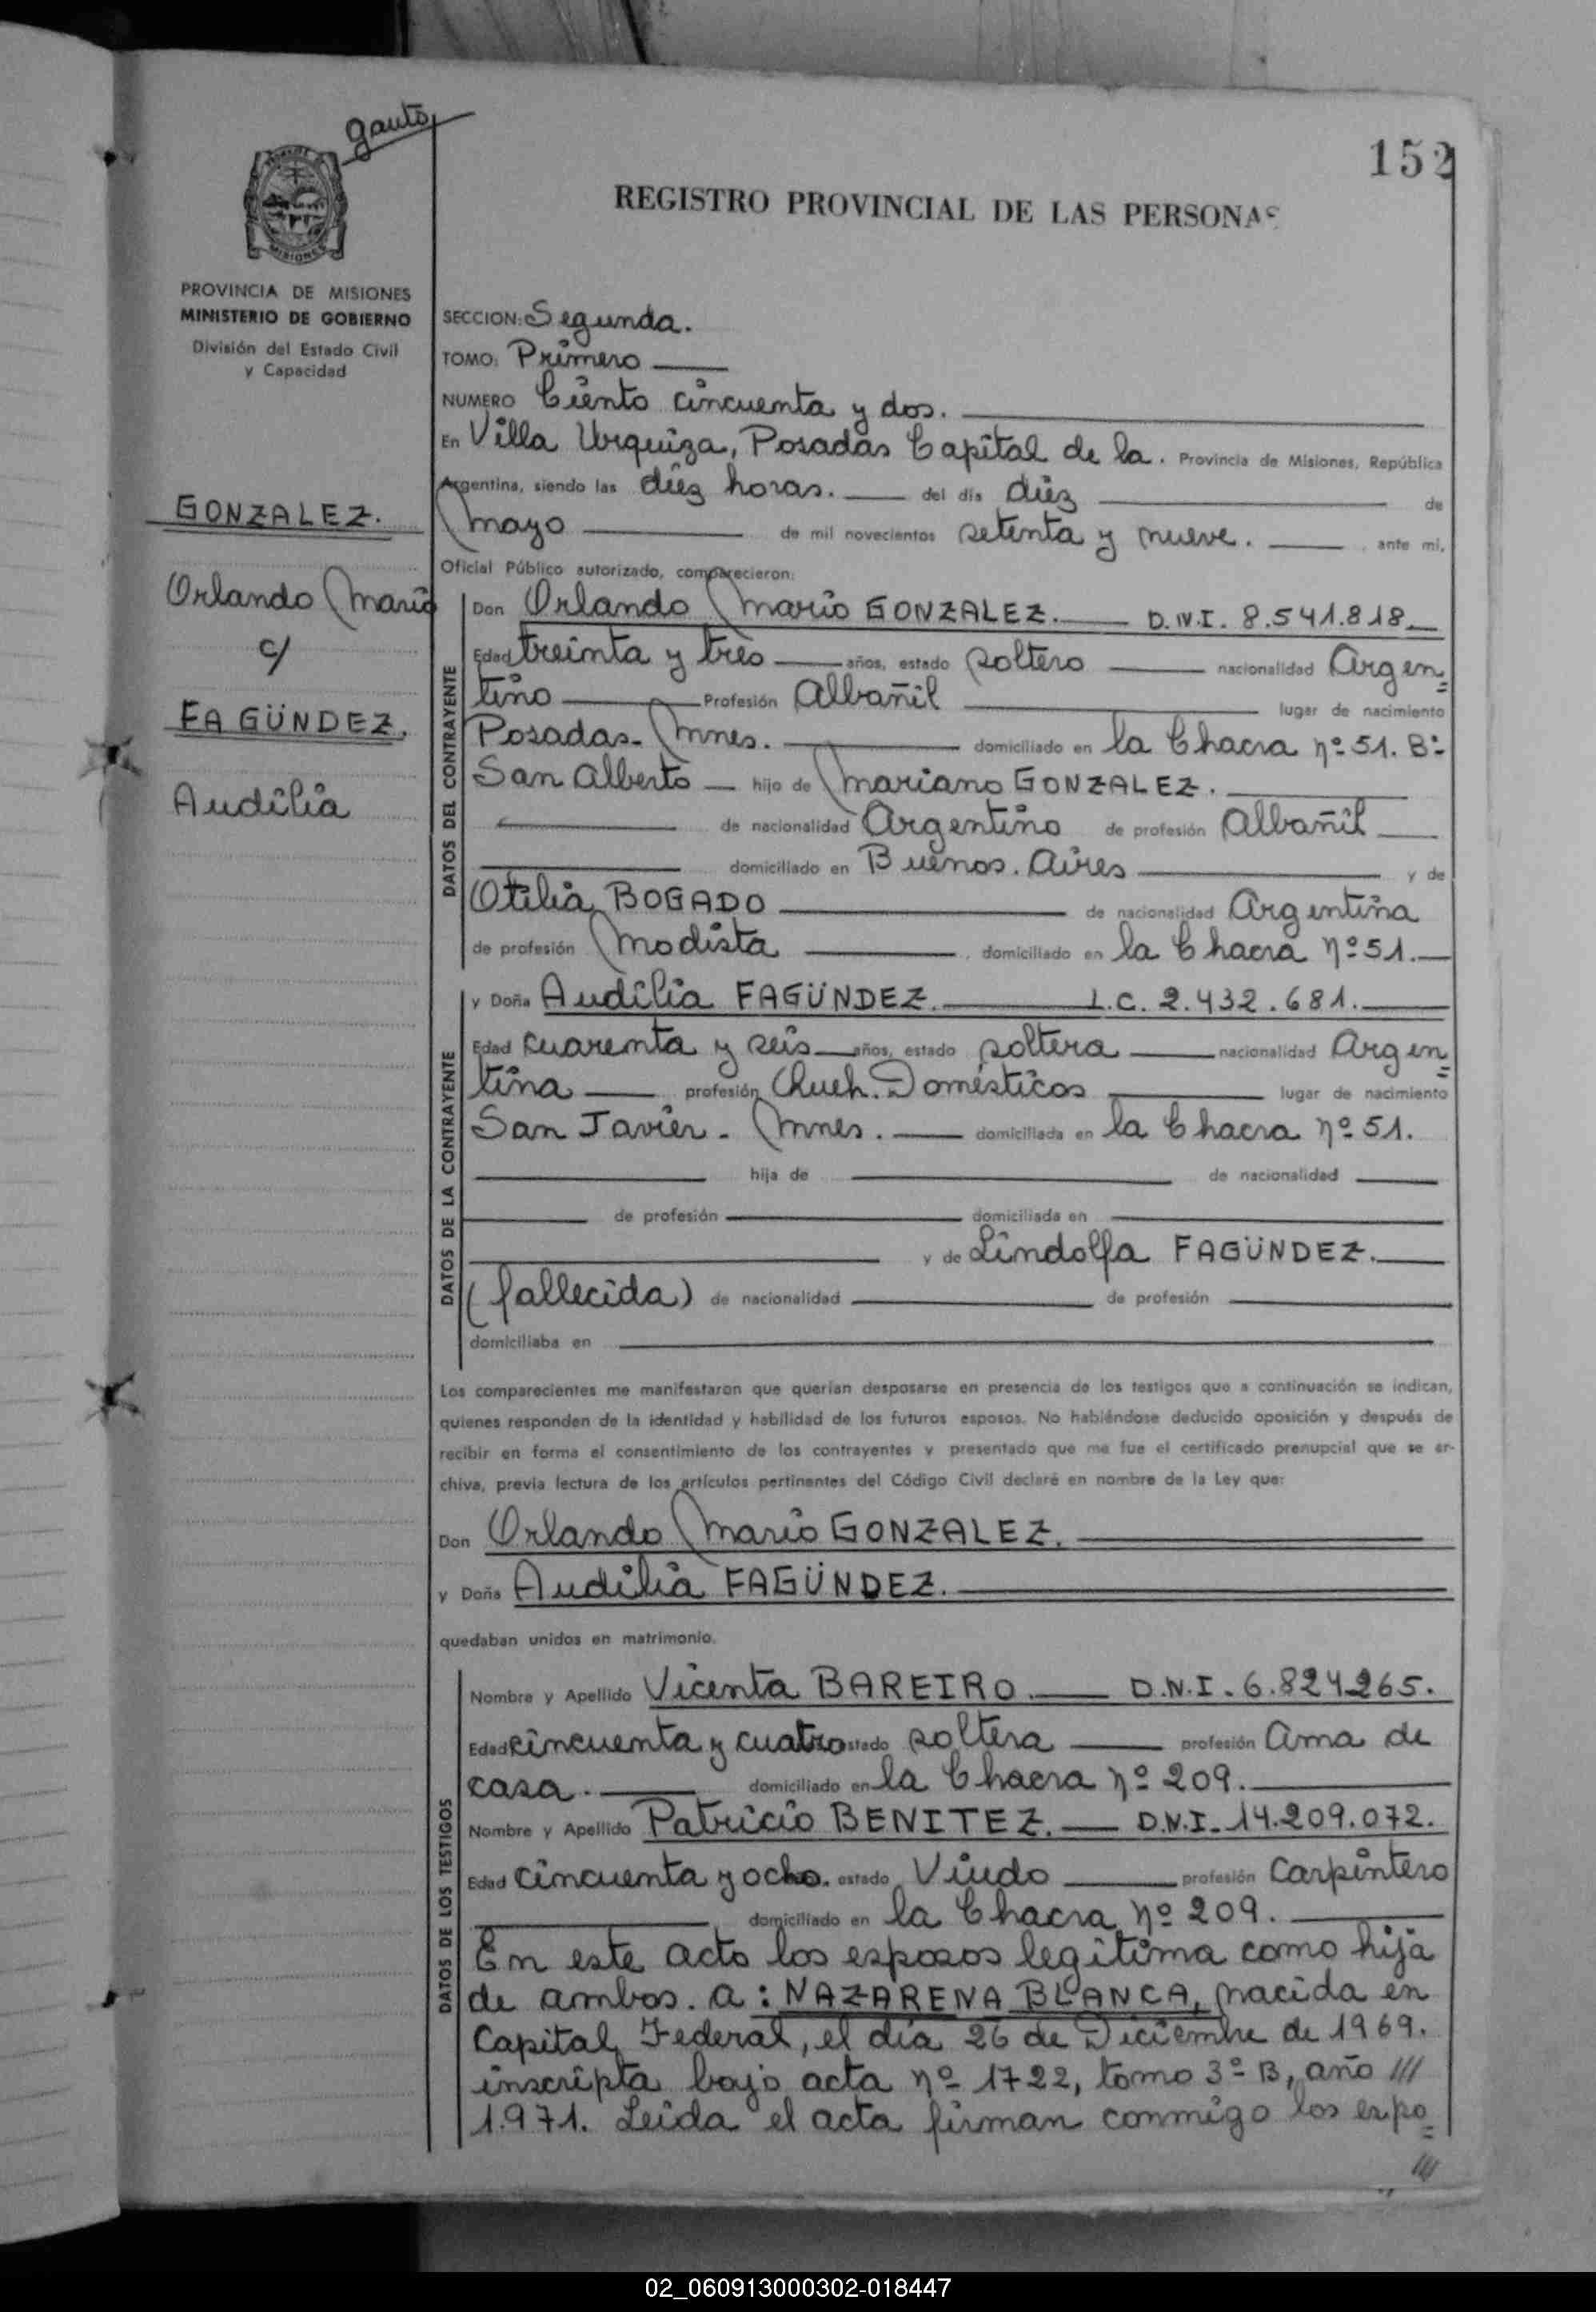 gauto
152
REGISTRO PROVINCIAL DE LAS PERSONAS
MISIONES
PROVINCIA DE MISIONES
MINISTERIO DE GOBIERNO
División del Estado Civil
y Capacidad
GONZALEZ.
Orlando Mario
c/
FAGÜNDEZ,
Audilia
SECCION: Segunda.
TOMO: Primero
NUMERO Ciento cincuenta y dos.
En Villa Urquiza, Posadas Capital de la. Provincia de Misiones, República
Argentina, siendo las diez horas. del día diez de
mayo de mil novecientos setenta y nueve. ante mi,
Oficial Público autorizado, comparecieron:
DATOS DEL CONTRAYENTE
Don Orlando Mario GONZALEZ. D.N.I. 8.541.818
Edad treinta y tres años, estado soltero nacionalidad Argen=
tino Profesión Albañil lugar de nacimiento
Posadas- Mnes. domiciliado en la Chacra nº 51. Bº
San Alberto hijo de Mariano GONZALEZ.
de nacionalidad Argentino de profesión Albañil
domiciliado en Buenos. Aires y de
Otilia BOGADO de nacionalidad Argentina
de profesión Modista, domiciliado en la Chacra nº 51.
DATOS DE LA CONTRAYENTE
y Doña Audilia FAGÜNDEZ. L.C. 2.432.681.
Edad cuarenta y seis años, estado soltera nacionalidad Argen=
tina profesión Queh. Domésticos lugar de nacimiento
San Javier. Mnes. domiciliada en la Chacra nº 51.
hija de de nacionalidad
de profesión domiciliada en
y de Lindolfa FAGÜNDEZ.
(fallecida) de nacionalidad de profesión
domiciliaba en
Los comparecientes me manifestaron que querían desposarse en presencia de los testigos que a continuación se indican,
quienes responden de la identidad y habilidad de los futuros esposos. No habiéndose deducido oposición y después de
recibir en forma el consentimiento de los contrayentes y presentado que me fue el certificado prenupcial que se ar-
chiva, previa lectura de los artículos pertinentes del Código Civil declaré en nombre de la Ley que:
Don Orlando Mario GONZALEZ.
y Doña Audilia FAGÜNDEZ.
quedaban unidos en matrimonio.
DATOS DE LOS TESTIGOS
Nombre y Apellido Vicenta BAREIRO. D.N.I. 6.824265.
Edad cincuenta y cuatro estado soltera profesión Ama de
casa. domiciliado en la Chacra nº 209.
Nombre y Apellido Patricio BENITEZ. D.N.I. 14.209.072.
Edad cincuenta y ocho. estado Viudo profesión Carpintero
domiciliado en la Chacra nº 209.
En este acto los esposos legitima como hija
de ambos. a: NAZARENA BLANCA, nacida en
Capital Federal, el día 26 de Diciembre de 1969.
inscripta bajo acta nº 1722, tomo 3º B, año ///
1.971. Leida el acta firman conmigo los espo=
///
02_060913000302-018447